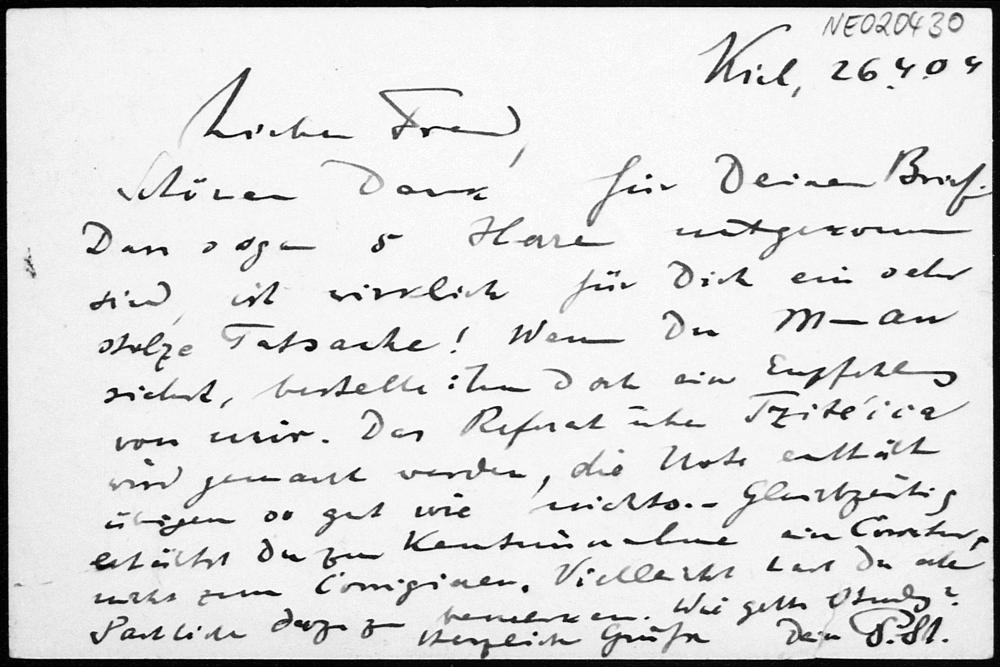 NE020430
Kiel, 26.4.04
Lieber Freund,
Schönen Dank für Deinen Brief.
Dass sogar 5 Herren mitgekommen
sind, ist wirklich für Dich ein sehr
stolze Tatsache! Wenn Du
siehst, bestelle ihm doch ein Empfehlung
von mir. Das Referat über Tzitéica
wird gemacht werden, die Note enthält
übrigens so gut wie nichts. – Gleichzeitig
erhältst Du zur Kenntnisnahme ein Correctur,
nicht zum Corrigieren. Vielleicht hast Du aber
sachlich dazu zu bemerken. Wie geht's Study?
Herzlich Grüße Dein P. St.